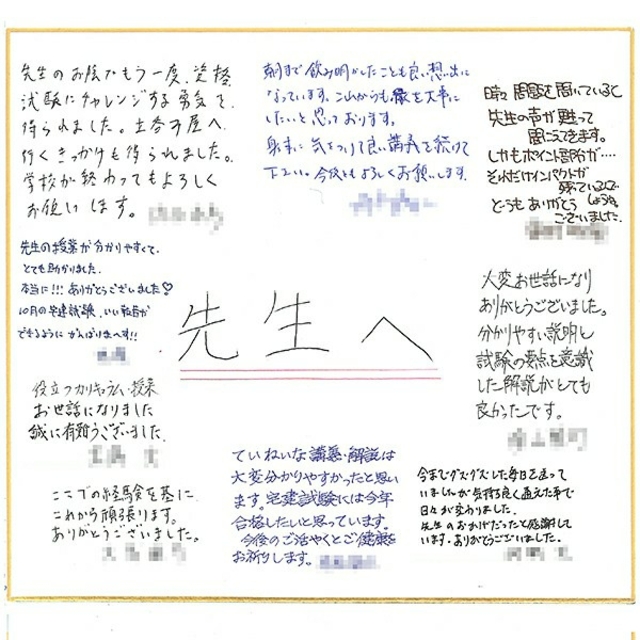 先生のお陰でもう一度、資格
試験にチャレンジする勇気を
得られました。土谷才屋へ
行くきっかけも得られました。
学校が終わってもよろしく
お願いします。
朝まで飲み明かしたことも良い想い出に
なっています。これからも縁を大事に
したいと思っております。
身体に気をつけて良い講義を続けて
下さい。今後もよろしくお願いします。
時々問題を聞いていると
先生の声が甦って
聞こえてきます。
しかもポイント部分が・・・・
それだけインパクトが
残っているんでしょうね。
どうもありがとう
ございました。
先生の授業が分かりやすくて、
とても助かりました。
本当に!!!ありがとうございました♡
10月の宅建試験、いい報告が
できるようにがんばりまーす!!
先生へ
大変お世話になり
ありがとうございました。
分かりやすい説明と
試験の要点を意識
した解説がとても
良かったです。
役立つカリキュラム・授業
お世話になりました
誠に有難うございました。
ここでの経験を基に
これから頑張ります。
ありがとうございました。
ていねいな講義・解説は
大変分かりやすかったと思い
ます。宅建試験には今年
合格したいと思っています。
今後のご活やくとご健康を
お祈りします。
今までグズグズした毎日を送って
いましたが気持ち良く通えた事で
日々が変わりました。
先生のおかげだったと感謝して
います。ありがとうございました。